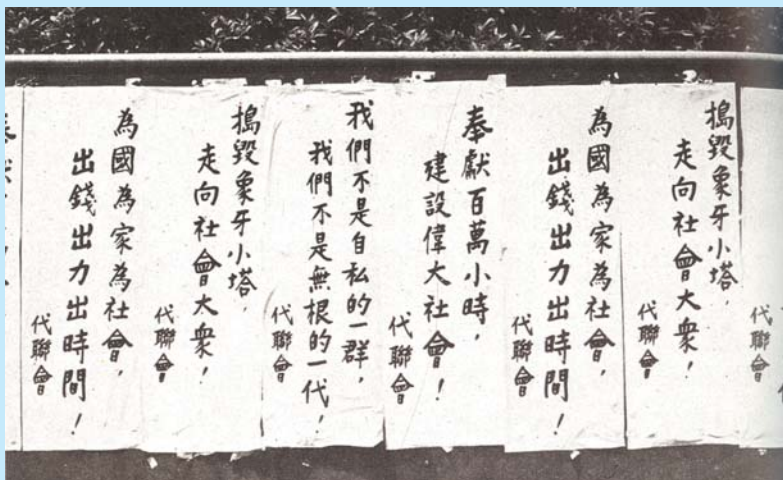 搗毀象牙小塔，
走向社會大衆！
代聯會
為國為家為社會，
出錢出力出時間！
代聯會
奉獻百萬小時，
建設偉大社會！
代聯會
我們不是自私的一群，
我們不是無根的一代！
代聯會
搗毀象牙小塔，
走向社會大衆！
代聯會
為國為家為社會，
出錢出力出時間！
代聯會